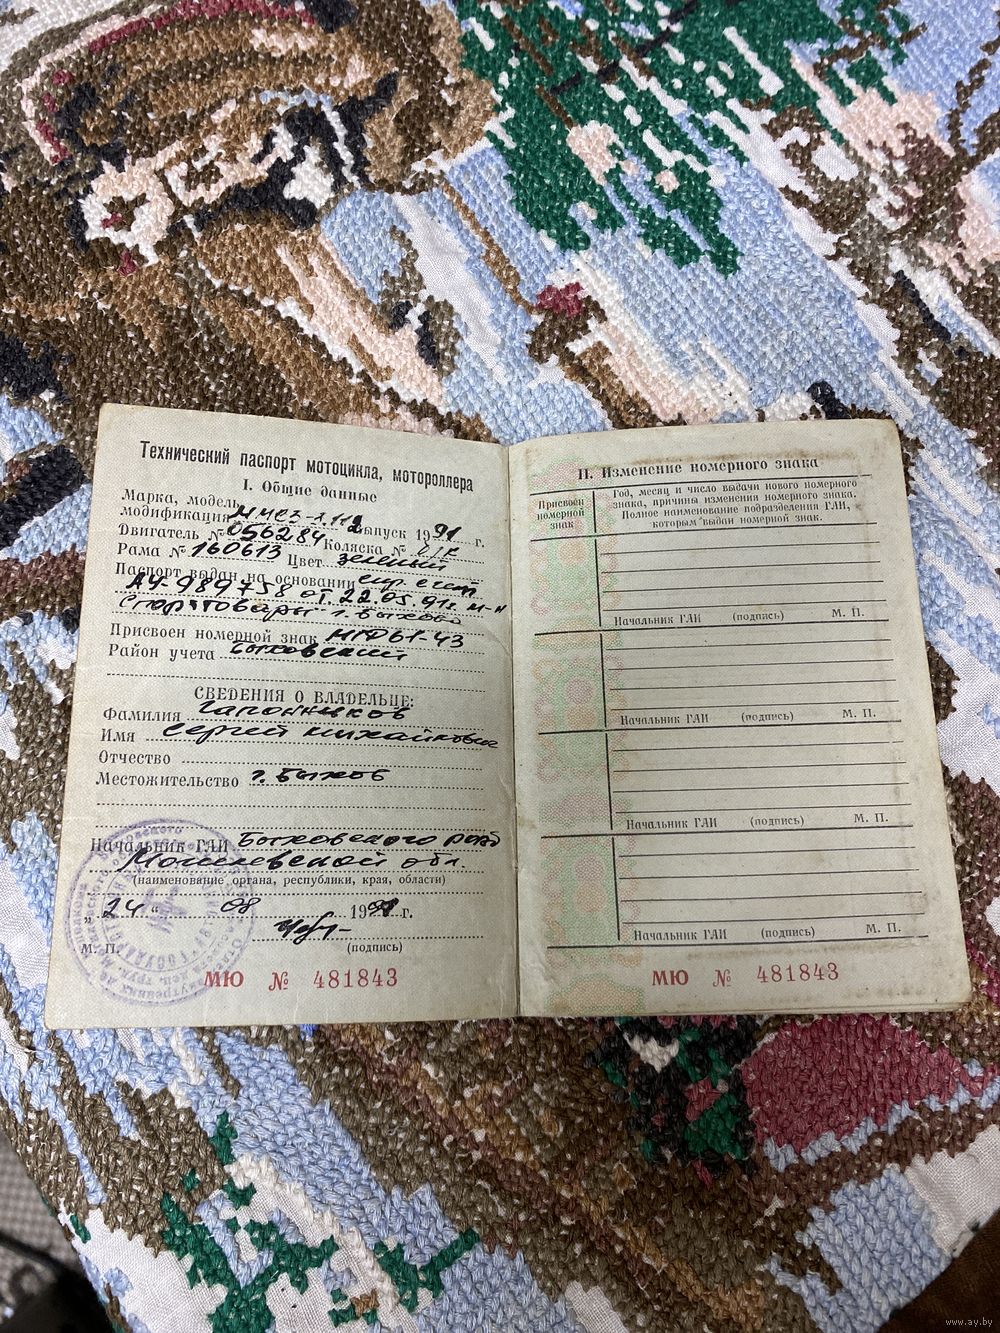 Технический паспорт мотоцикла, мотороллера
I. Общие данные
Марка, модель,
модификация ММВЗ-3.112 выпуск 1991 г.
Двигатель № 056284 Коляска № б/к
Рама № 160613 Цвет зеленый
Паспорт выдан на основании спр. счет
АЧ-989758 от 22.05.91г. м-н
Спорттовары г. Быхово
Присвоен номерной знак
Район учета Быховский
СВЕДЕНИЯ О ВЛАДЕЛЬЦЕ:
Фамилия Гапонников
Имя Сергей Михайлович
Отчество
Местожительство г. Быхов
Начальник ГАИ Быховского РОВД
Могилевской обл.
(наименование органа, республики, края, области)
„ 24 “ 08 1991 г.
М. П. (подпись)
МЮ № 481843
II. Изменение номерного знака
Присвоен номерной знак
Год, месяц и число выдачи нового номерного
знака, причины изменения номерного знака.
Полное наименование подразделения ГАИ,
которым выдан номерной знак.
Начальник ГАИ (подпись) М. П.
Начальник ГАИ (подпись) М. П.
Начальник ГАИ (подпись) М. П.
Начальник ГАИ (подпись) М. П.
МЮ № 481843
www.ay.by